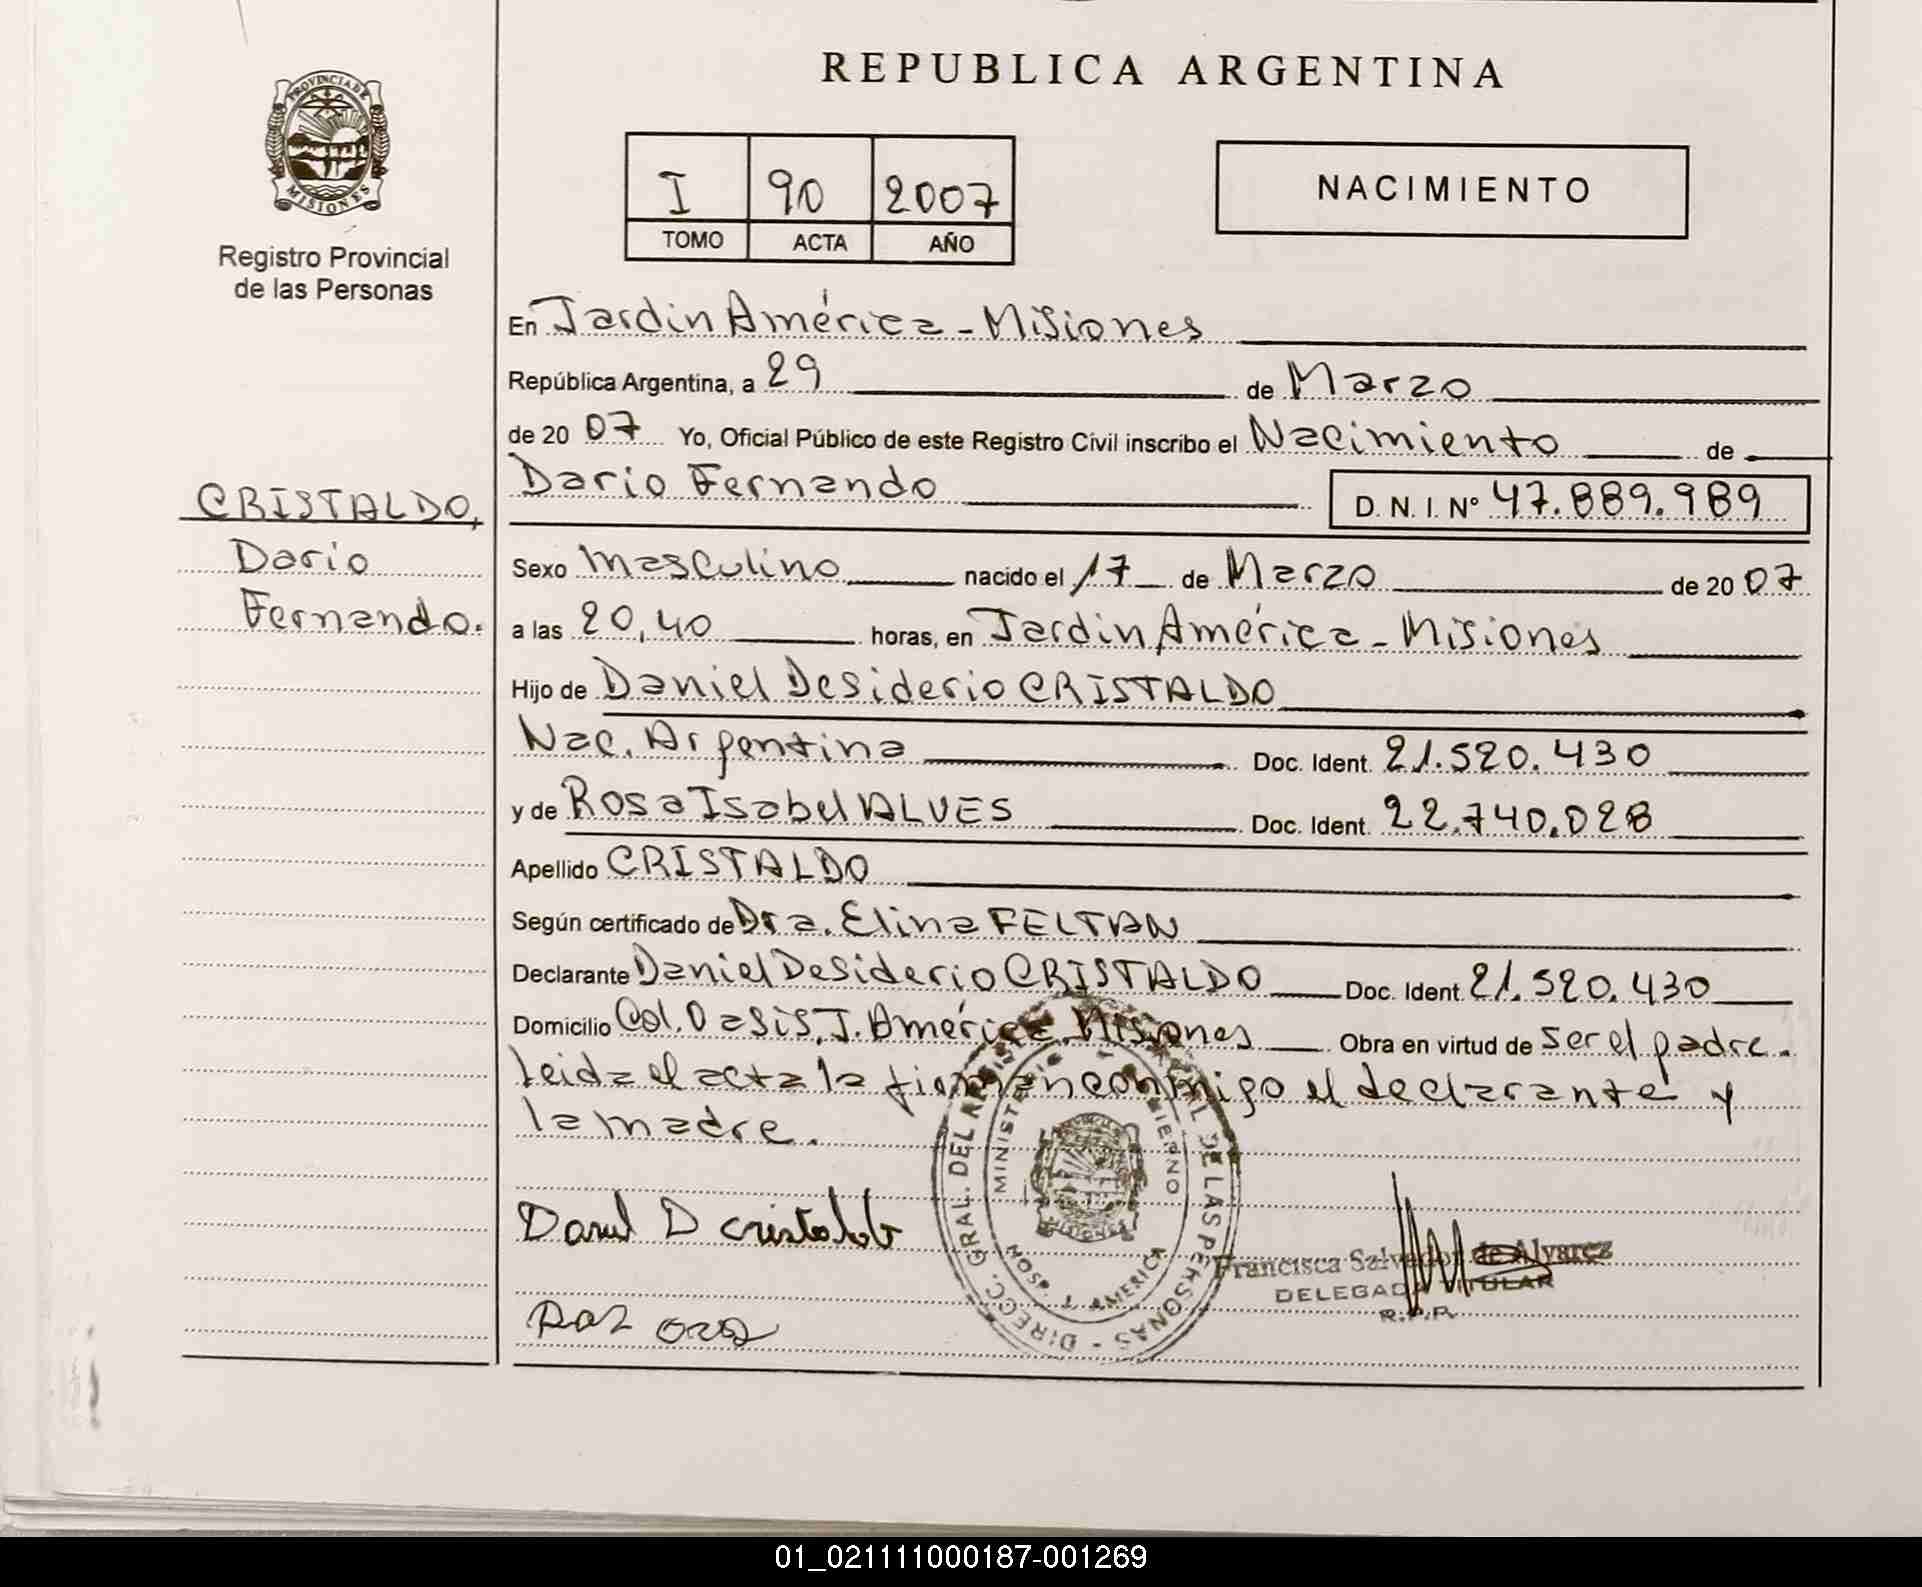 REPUBLICA ARGENTINA
PROVINCIA DE
MISIONES
Registro Provincial
de las Personas
I 90 2007
TOMO ACTA AÑO
NACIMIENTO
CRISTALDO,
Dario
Fernando.
En Jardin América - Misiones
República Argentina, a 29 de Marzo
de 2007 Yo, Oficial Público de este Registro Civil inscribo el Nacimiento de
Dario Fernando D. N. I. Nº 47.889.989
Sexo Masculino nacido el 17 de Marzo de 2007
a las 20,40 horas, en Jardin América - Misiones
Hijo de Daniel Desiderio CRISTALDO
Nac. Argentina Doc. Ident. 21.520.430
y de Rosa Isabel ALVES Doc. Ident. 22.740.028
Apellido CRISTALDO
Según certificado de Dra. Elina FELTAN
Declarante Daniel Desiderio CRISTALDO Doc. Ident. 21.520.430
Domicilio Col. Oasis, J. América, Misiones Obra en virtud de ser el padre.
Leida el acta la firman conmigo el declarante y
la madre.
DIRECC. GRAL. DEL REGISTRO PROVINCIAL DE LAS PERSONAS
MINISTERIO DE GOBIERNO
HOSP. J. AMERICA
MISIONES
Daniel D cristaldo
Francisca Salvador de Alvarez
DELEGADA TITULAR
R.P.P.
01_021111000187-001269